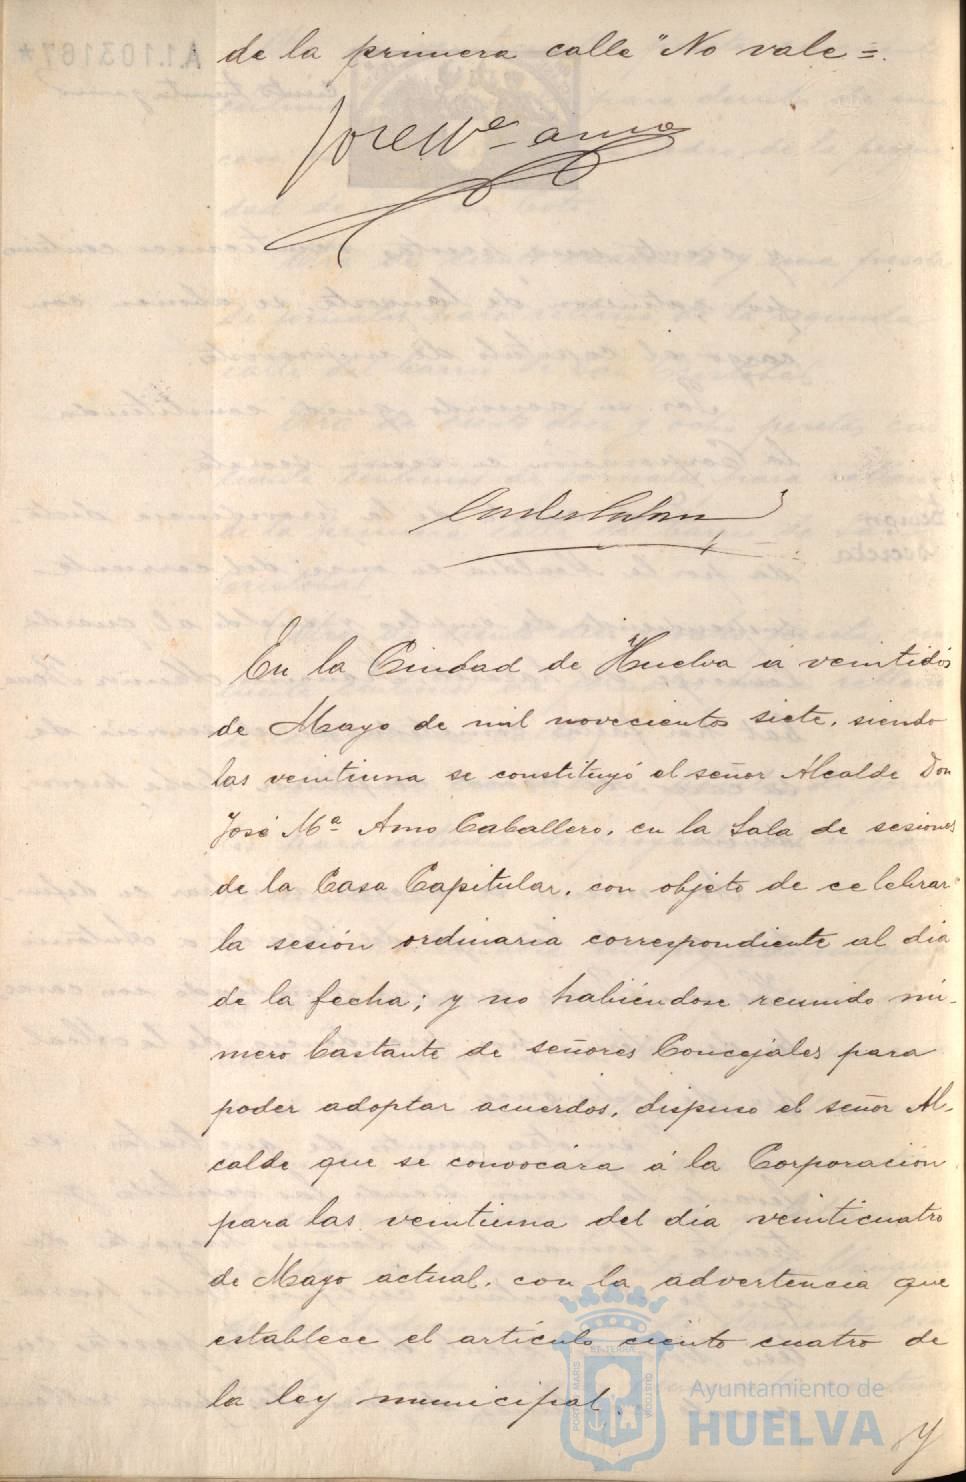 de la primera calle "No vale=.
José Mª Amo
En la Ciudad de Huelva á veintidós
de Mayo de mil novecientos siete, siendo
las veintiuna se constituyó el señor Alcalde Don
José Mª Amo Caballero, en la Sala de sesiones
de la Casa Capitular, con objeto de celebrar
la sesión ordinaria correspondiente al dia
de la fecha; y no habiéndose reunido nú-
mero bastante de señores Concejales para
poder adoptar acuerdos, dispuso el señor Al-
calde que se convocára á la Corporación
para las veintiuna del dia veinticuatro
de Mayo actual, con la advertencia que
establece el artículo ciento cuatro de
la ley municipal.
Y
PORTUS MARIS
ET TERRÆ
CUSTODIA
Ayuntamiento de
HUELVA